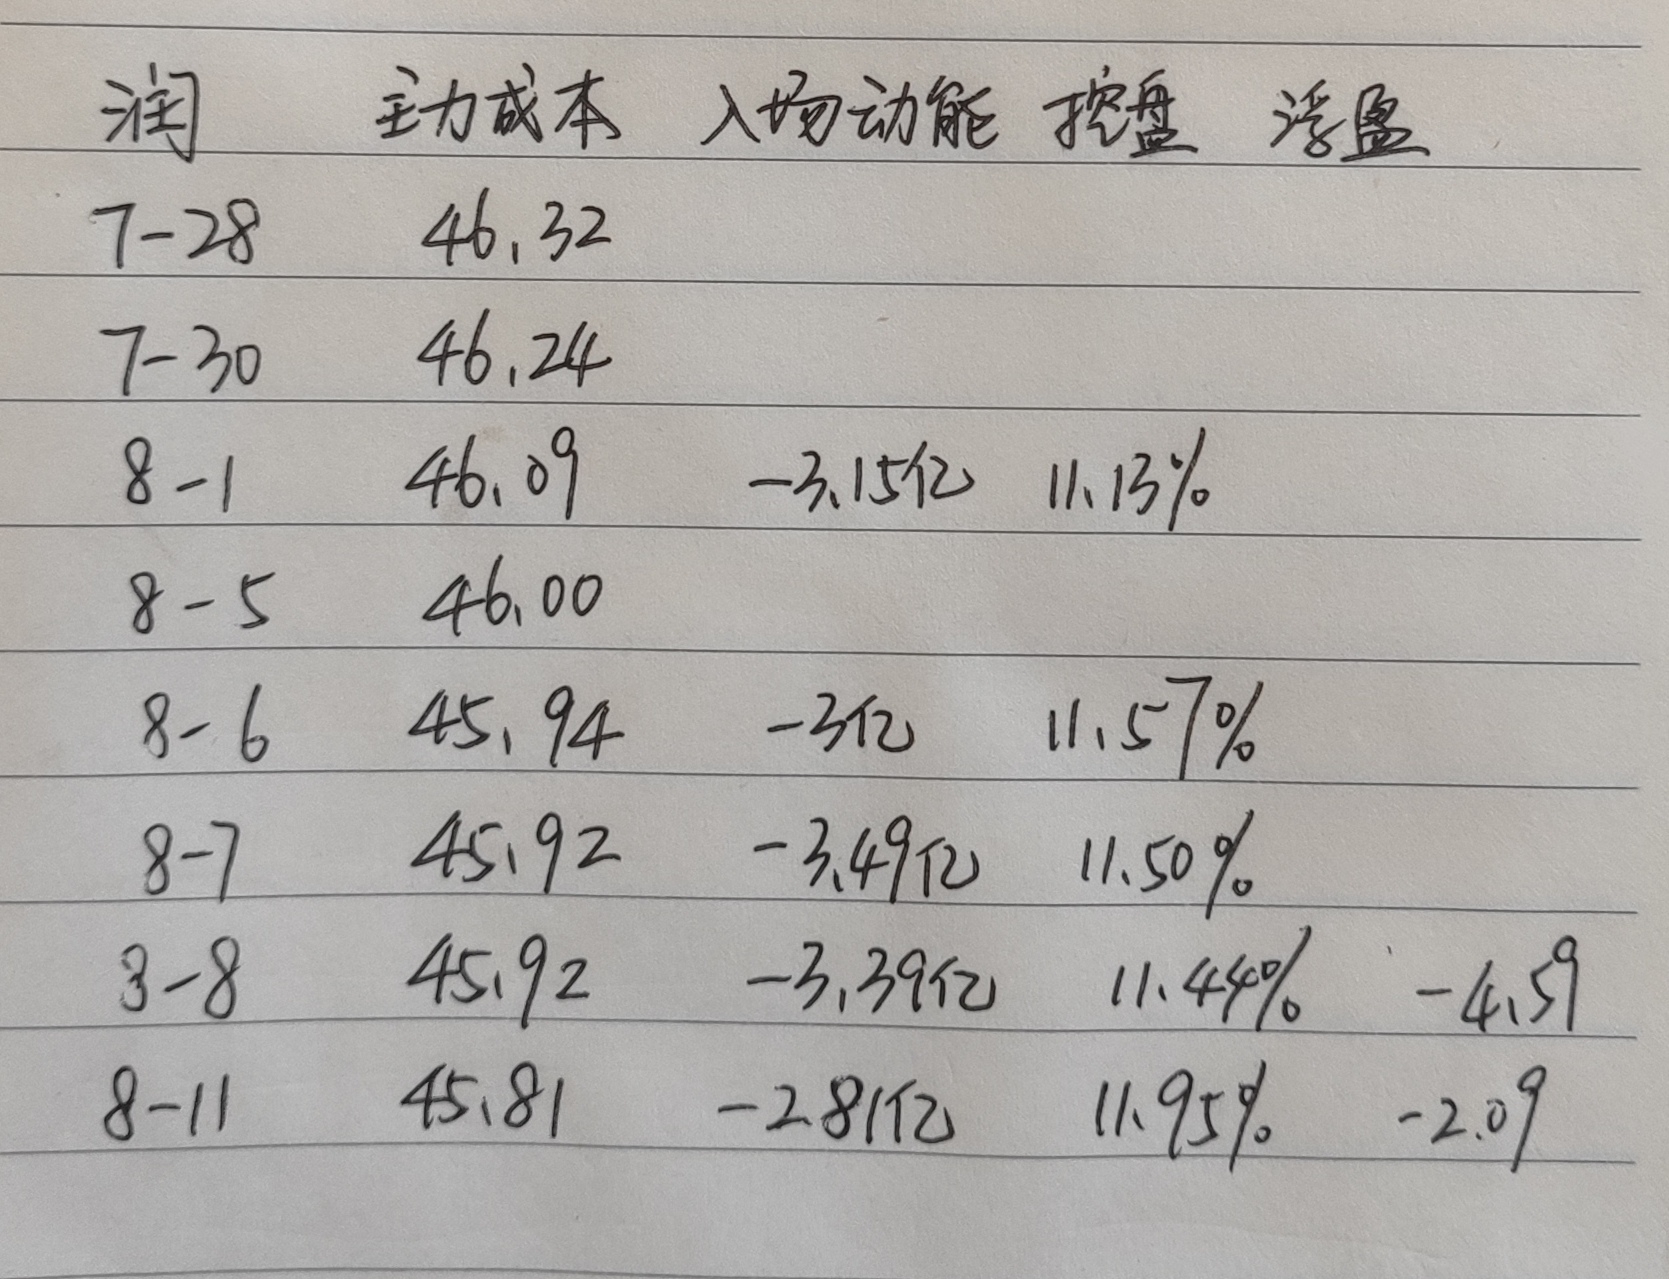 润 主力成本 入场动能 挖盘 浮盈
7-28 46.32
7-30 46.24
8-1 46.09 -3.15亿 11.13%
8-5 46.00
8-6 45.94 -3亿 11.57%
8-7 45.92 -3.49亿 11.50%
3-8 45.92 -3.39亿 11.44% -4.59
8-11 45.81 -2.81亿 11.95% -2.09